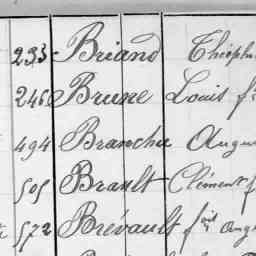 233 Briand Théophi
246 Brune Louis fs
494 Branchu Augu
505 Brault Clément f
572 Brévault fois Aug